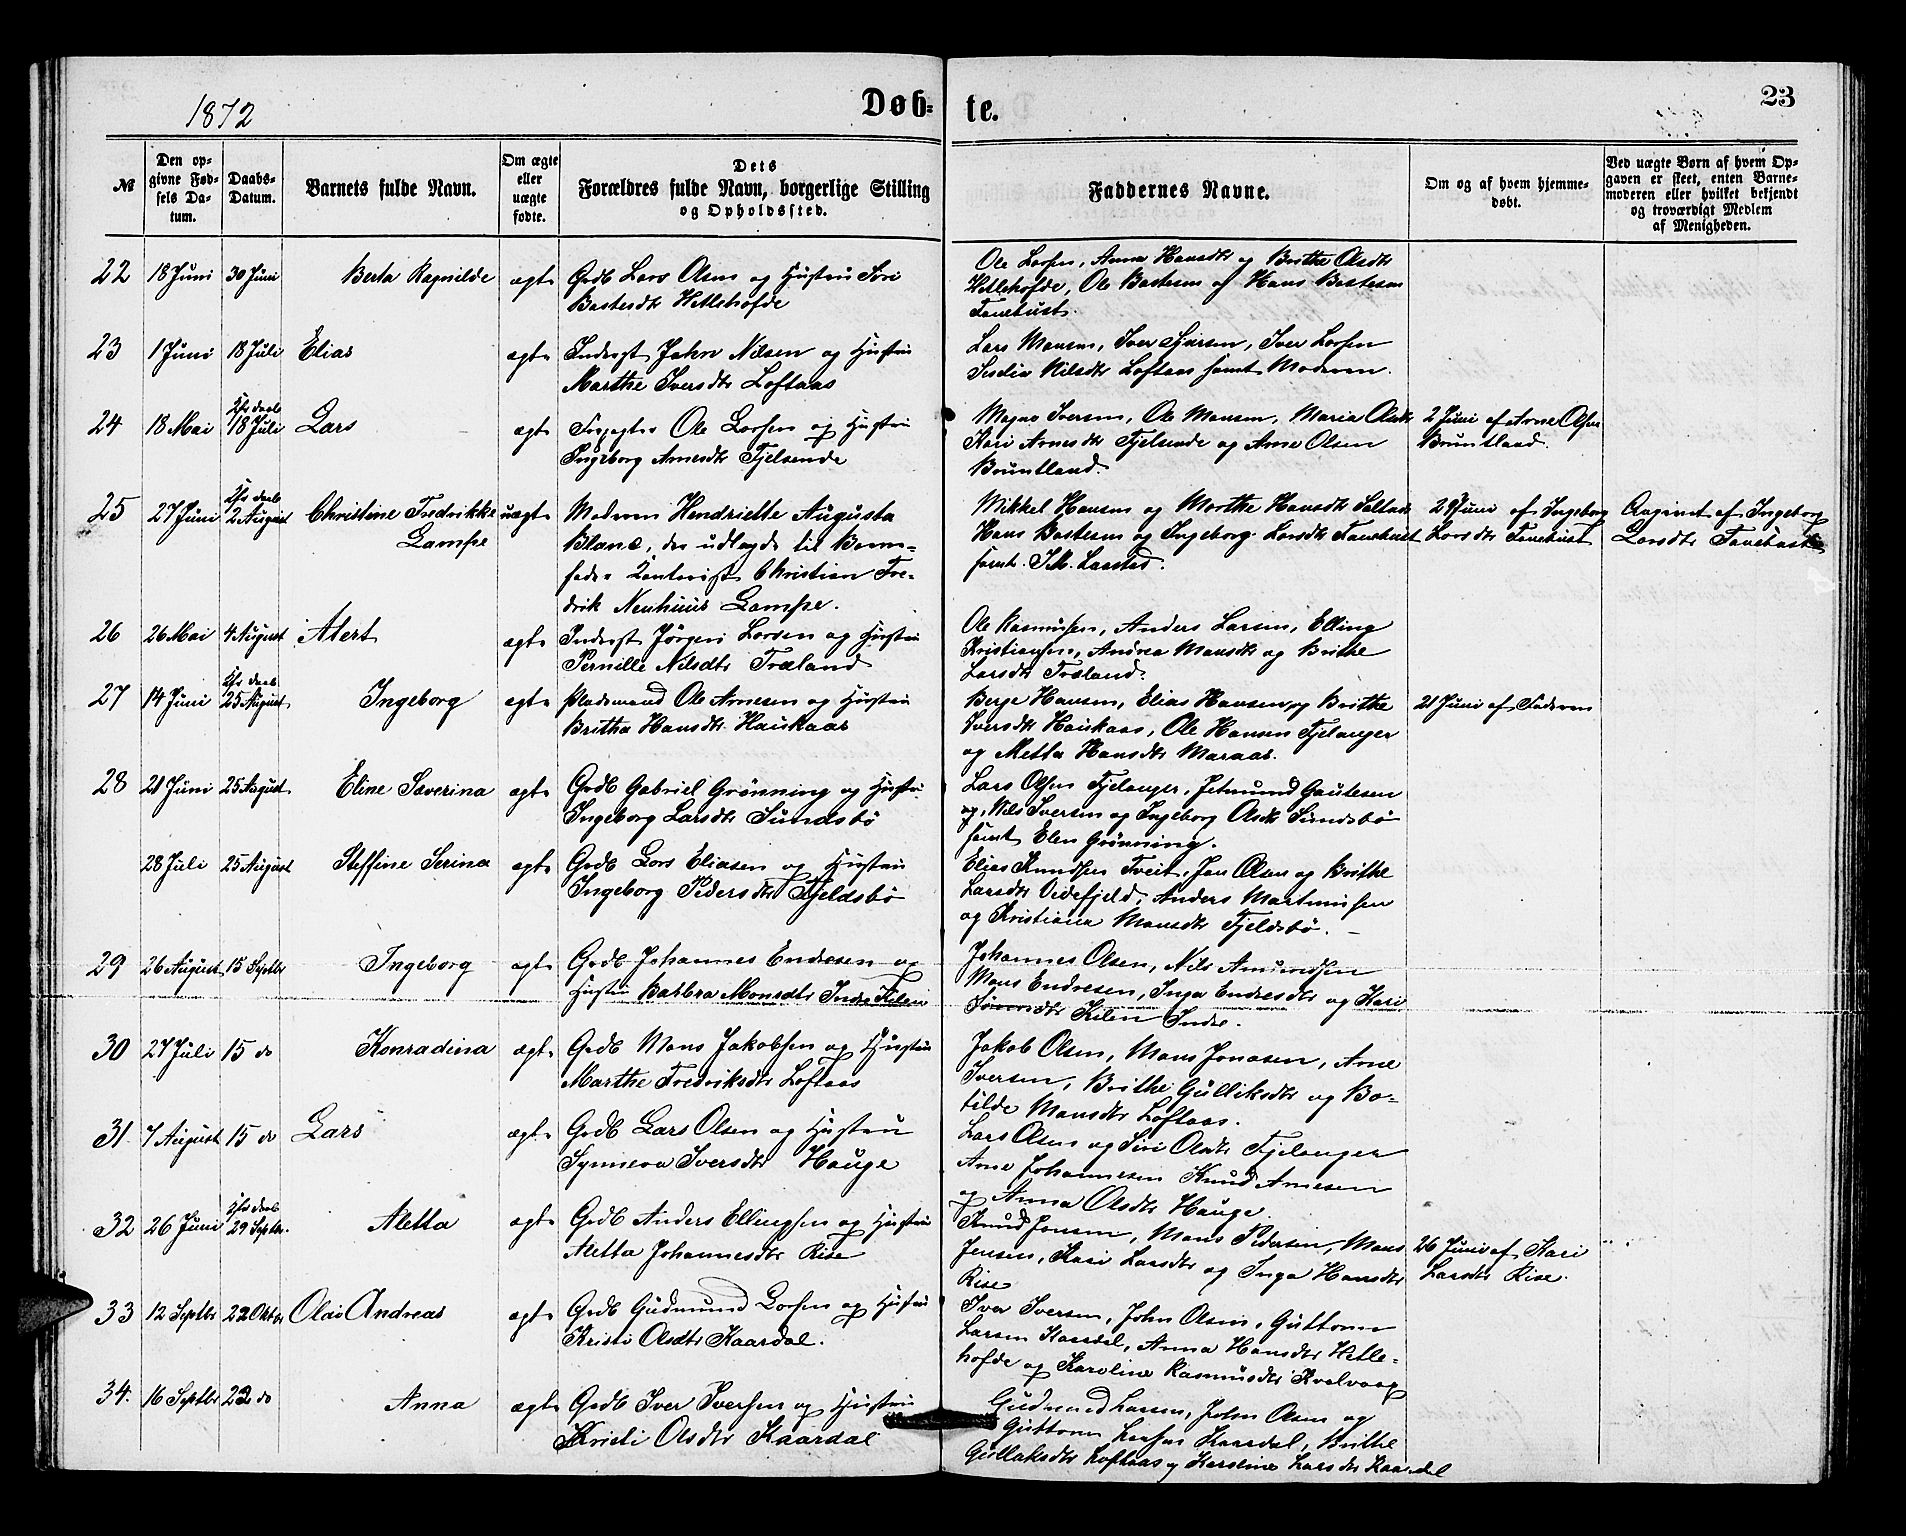 1872
Døb-
te.
23
№
Den op-
givne Fød-
sels Da-
tum.
Daabs-
Datum.
Barnets fulde Navn.
Om ægte
eller
uægte
fødte.
Dets
Forældres fulde Navn, borgerlige Stilling
og Opholdssted.
Faddernes Navne.
Om og af hvem hjemme-
døbt.
Ved uægte Børn af hvem Op-
gaven er skeet, enten Barne-
moderen eller hvilket bekjendt
og troværdigt Medlem
af Menigheden.
22 18 Juni 30 Juni Berta Ragnilde ægte Grdb Lars Olsen og Hustru Siri
Bastesdtr Hetlehofde
Ole Larsen, Anna Hansdtr og Brithe Olsdtr
Hetlehofde, Ole Bastesen og Hans Bastesen
Tanebust.
23 1 Juni 18 Juli Elias ægte Inderst John Nilsen og Hustru
Marthe Iversdtr Loftaas
Lars Monsen, Iver Iversen, Iver Larsen
Nilsdtr Loftaas samt Moderen.
24 18 Mai 18 Juli Lars ægte Ole Larsen og Hustru
Ingeborg Arnesdtr Fjelsende
Magne Iversen, Ole Monsen, Maria Olsdtr
Kari Arnesdtr Fjelsende og Arne Olsen
Bruntland.
2 Juni af Arne Olsen
Bruntland.
25 27 Juni 2 August Christine Fredrikke uægte Moderen Henriette Augusta
Lampe
Blanc, der udlagde til Barne-
fader Kontorist Christian Fre-
drik Neuhuus Lampe.
Mikkel Hansen og Marthe Hansdtr
Hans Bastesen og Ingeborg Larsdtr Tanebust
samt I.M. Laastad.
29 Juni af Ingeborg
Larsdtr Tanebust
Angivet af Ingeborg
Larsdtr Tanebust
26 26 Mai 4 August Alert ægte Inderst Jörgen Larsen og Hustru
Pernille Nilsdtr Træland
Ole Rasmussen, Anders Larsen, Elling
Kristiansen, Andrea Monsdtr og Brithe
Larsdtr Træland.
27 14 Juni 25 August Ingeborg ægte Pladsmand Ole Arnesen og Hustru
Britha Hansdtr Haukaas
Berge Hansen, Elias Hansen og Brithe
Iversdtr Haukaas, Ole Hansen Fjelanger
og Metta Hansdtr Maraas.
21 Juni af Faderen
28 21 Juni 25 August Eline Severina ægte Grdb Gabriel Grønning og Hustru
Ingeborg Larsdtr Sundsbø
Lars Olsen Fjelanger, Jetmund Gautesen
og Nils Iversen og Ingeborg Olsdtr Sundsbø
samt Elen Grønning.
28 Juli 25 August Steffine Serina ægte Grdb Lars Eliasen og Hustru
Ingeborg Pedersdtr Fjeldsbø
Elias Knudsen Tveit, Jan Olsen og Brithe
Larsdtr Videfjeld, Anders Martinussen
og Kristiana Monsdtr Fjeldsbø.
29 26 August 15 Septbr Ingeborg ægte Grdb Johannes Endresen og
Hustru Barbra Monsdtr Indre Kilen
Johannes Olsen, Nils Amundsen
Mons Endresen, Inga Endresdtr og Kari
Kilen Indre.
30 27 Juli 15 do Konradina ægte Grdb Mons Jakobsen og Hustru
Marthe Fredriksdtr Loftaas
Jakob Olsen, Mons Jonasen, Arne
Iversen, Brithe Gulliksdtr og Bo-
tilde Monsdtr Loftaas.
31. 7 August 15 do Lars ægte Grdb Lars Olsen og Hustru
Synneva Iversdtr Hauge
Lars Olsen og Siri Olsdtr Fjelanger
Arne Johannesen Knud Arnesen
og Anna Olsdtr Hauge.
32 26 Juni 29 Septbr. Aletta ægte Grdb Anders Ellingsen og Hustru
Aletta Johannesdtr Rise
Knud Jonsen, Mons Pedersen, Mons
Jensen, Kari Larsdtr og Inga Hansdtr
Rise
26 Juni af Kari
Larsdtr Rise.
33 12 Septbr 22 Oktbr Olai Andreas ægte Grdb Gudmund Larsen og Hustru
Kristi Olsdtr Kaardal.
Iver Iversen, John Olsen, Guttorm
Larsen Kaardal, Anna Hansdtr Hetle-
hofde og Karoline Rasmusdtr Kvalvaag
34. 16 Septbr 22 do Anna ægte Grdb Iver Iversen og Hustru
Kristi Olsdtr Kaardal
Gudmund Larsen, John Olsen og
Guttorm Larsen Kaardal, Brithe
Gullaksdtr Loftaas og Karoline Larsdtr Kaardal